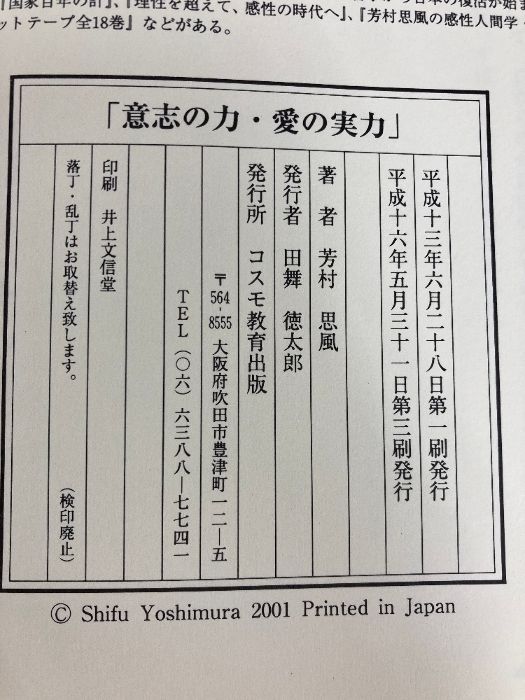 『国家百年の計』、『理性を超えて、感性の時代へ』、『芳村思風の感性人間学・
ットテープ全18巻』などがある。
「意志の力・愛の実力」
平成十三年六月二十八日第一刷発行
平成十六年五月三十一日第三刷発行
著　者　芳村　思風
発行者　田舞　徳太郎
発行所　コスモ教育出版
〒564-8555 大阪府吹田市豊津町一二―五
TEL（〇六）六三八八―七七四一
印刷　井上文信堂
落丁・乱丁はお取替え致します。　（検印廃止）
© Shifu Yoshimura 2001 Printed in Japan